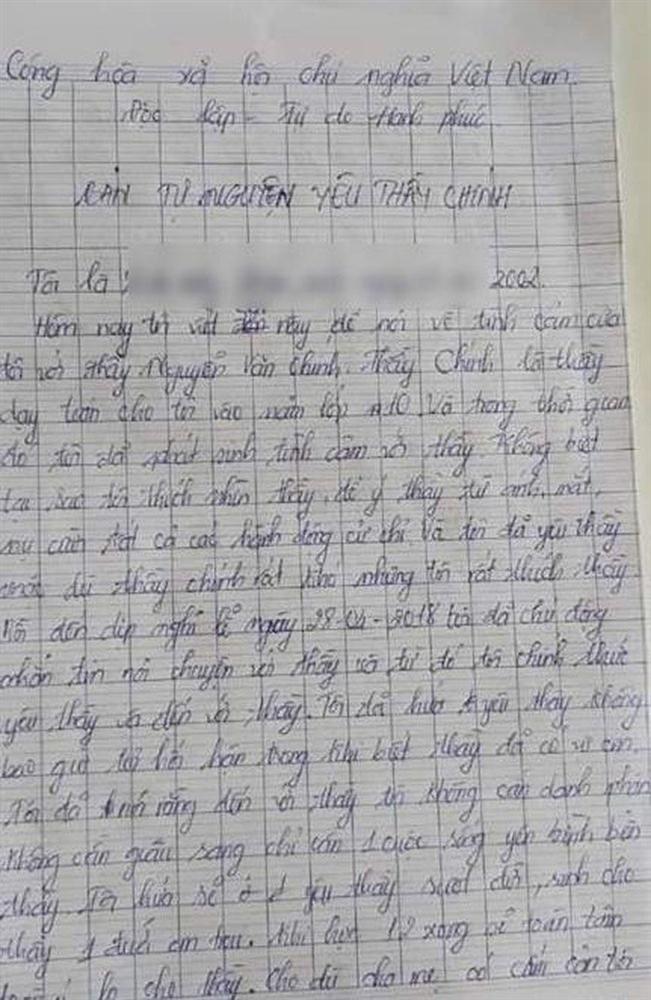 Cộng hòa xã hội chủ nghĩa Việt Nam.
Độc lập - Tự do - Hạnh phúc
BẢN TỰ NGUYỆN YÊU THẦY CHÍNH
Tôi là : 2002.
Hôm nay tôi viết này để nói về tình cảm của
tôi với thầy Nguyễn Văn Chính. Thầy Chính là thầy
dạy toán cho tôi vào năm lớp 10. Và trong thời gian
đó tôi đã phát sinh tình cảm với thầy. Không biết
tại sao tôi thích nhìn thầy, để ý thầy từ ánh mắt,
nụ cười tất cả các hành động cử chỉ. Và tôi đã yêu thầy
mặc dù thầy chính rất khó nhưng tôi rất thích thầy
đến dịp nghỉ lễ ngày 28-04-2018 tôi đã chủ động
nhắn tin nói chuyện với thầy và từ đó tôi chính thức
yêu thầy và đến với thầy. Tôi đã hứa yêu thầy không
bao giờ tôi hối hận trong khi biết thầy đã có vợ con.
Tôi đã rằng đến với thầy thì không cần danh phận
không cần giàu sang chỉ cần 1 cuộc sống yên bình bên
thầy. Tôi hứa sẽ ở yêu thầy suốt đời, sinh cho
thầy 1 đứa con trai. Khi học 12 xong sẽ toàn tâm
lo cho thầy. Cho dù cha mẹ có cấm cản tôi